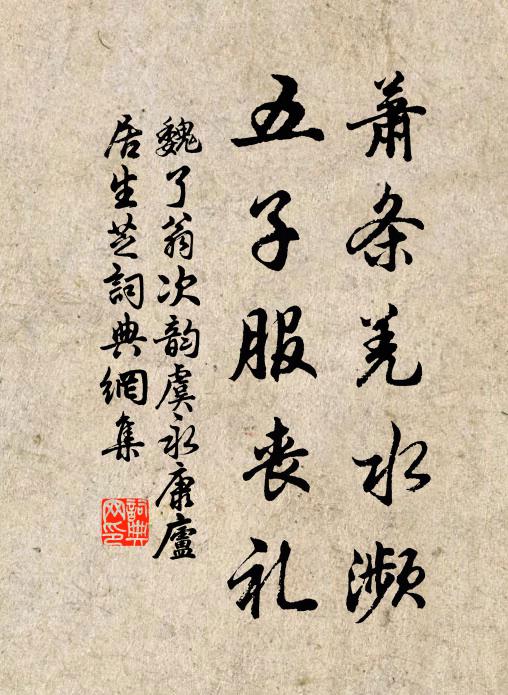 萧条羌水濒
五子服丧礼
魏了翁次韵虞永康廬
居生芝詞典網集
詞典网印